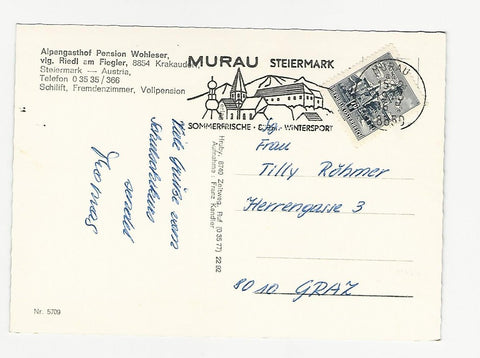 Alpengasthof Pension Wohleser,
vlg. Riedl am Fiegler, 8854 Krakaudorf
Steiermark — Austria,
Telefon 0 35 35 / 366
Schilift, Fremdenzimmer, Vollpension
MURAU STEIERMARK
SOMMERFRISCHE - WINTERSPORT
MURAU
8850
Frau
Tilly Röhmer
Herrengasse 3
8010 GRAZ
Viele Grüße vom
sendet
Thomas
Hruby, 8740 Zeltweg, Ruf (0 35 77) 22 92
Aufnahme: Franz Kandler
Nr. 5709